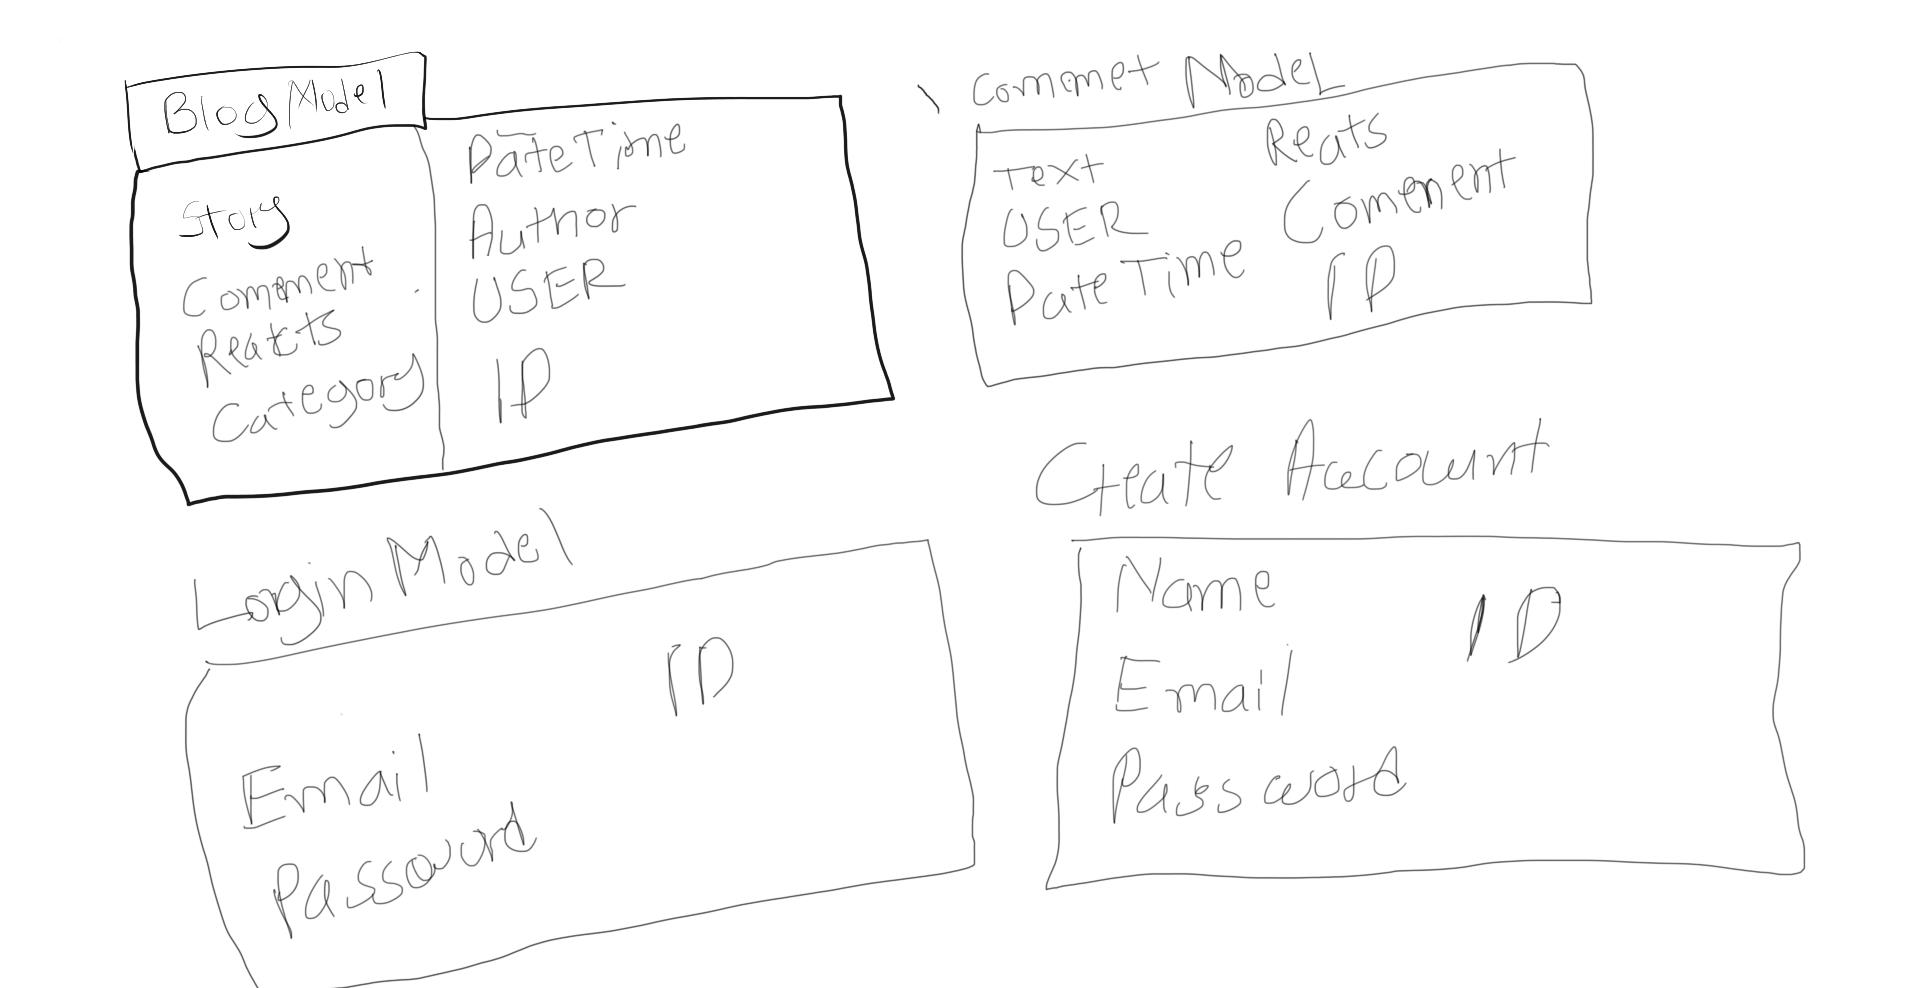 Blog Model
Story
Comment
Reatts
Category
DateTime
Author
USER
ID
Commet Model
Text
USER
DateTime
Reats
Comment
ID
Login Model
ID
Email
Password
Create Account
Name
Email
Password
ID